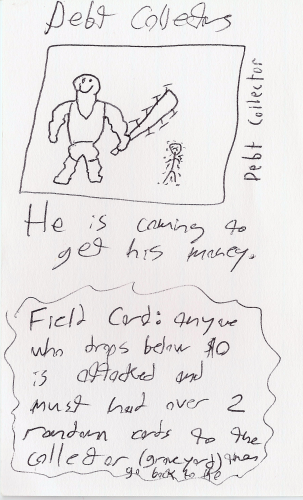 Debt Collectors
Debt Collector
He is coming to
get his money.
Field Card: Anyone
who drops below $0
is attacked and
must had over 2
random cards to the
collector (graveyard) than
go back to